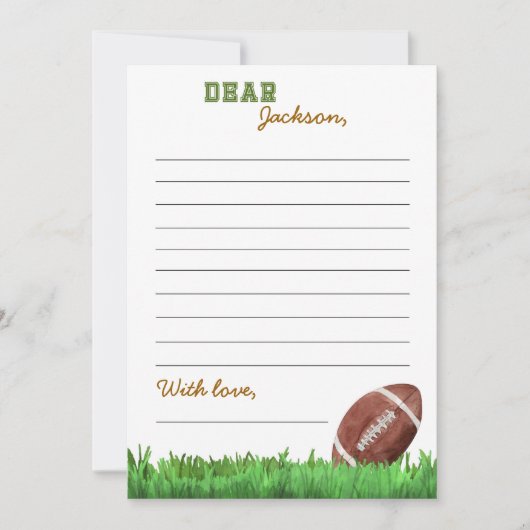 DEAR
Jackson,
With love,